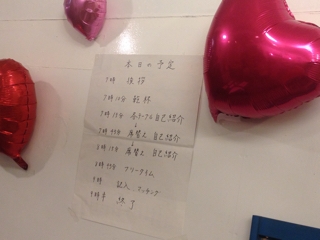 本日の予定
7時 挨拶
7時10分 乾杯
7時15分 各テーブル自己紹介
↓
7時45分 席替え 自己紹介
↓
8時15分 席替え 自己紹介
8時45分 フリータイム
9時 記入 マッチング
9時半 終了